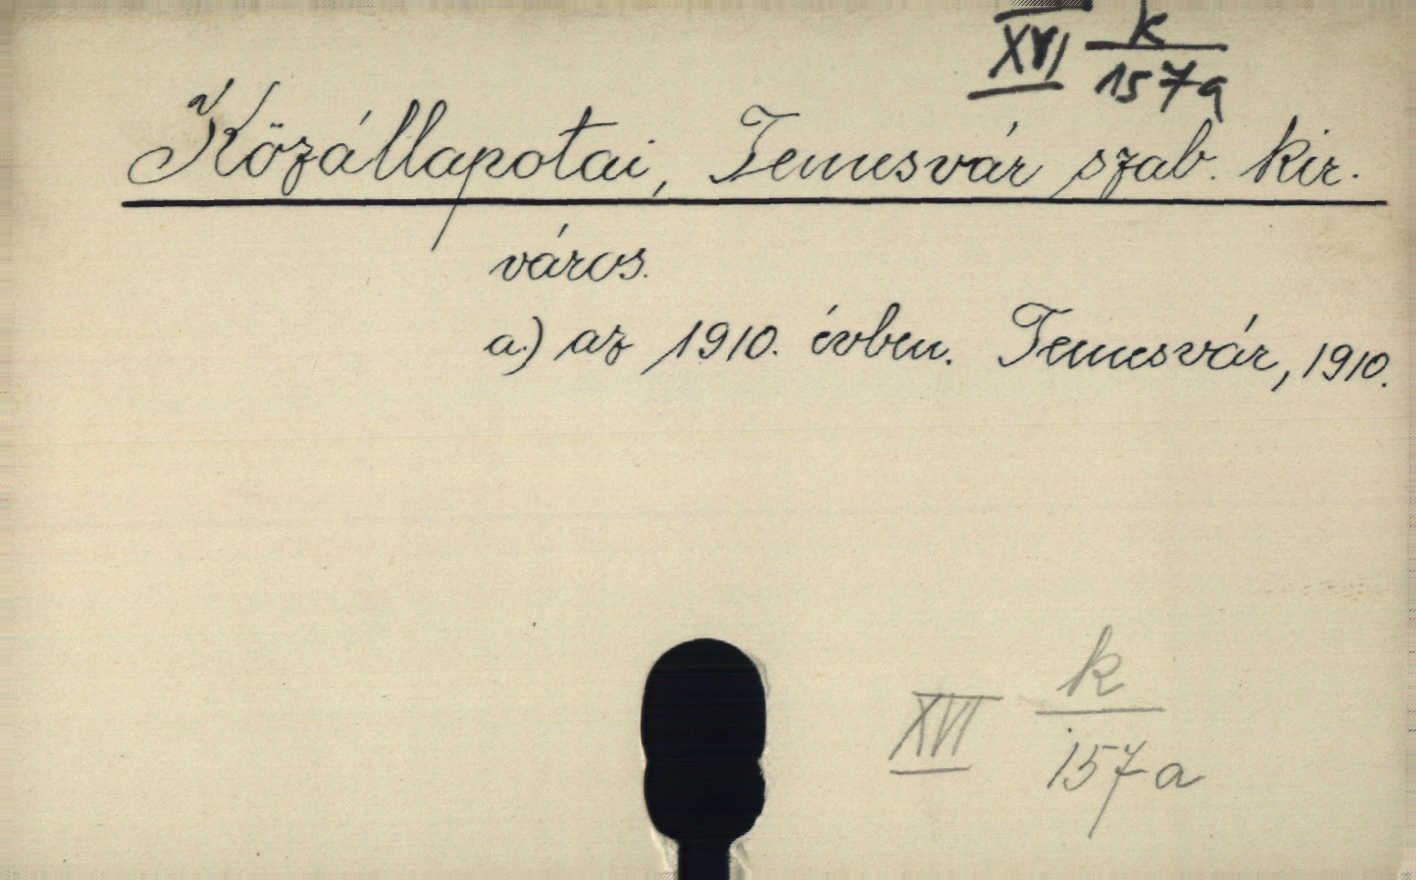 XVI k
157a
Közállapotai, Temesvár szab. kir.
város.
a.) az 1910. évben. Temesvár, 1910.
k
XVI
157a